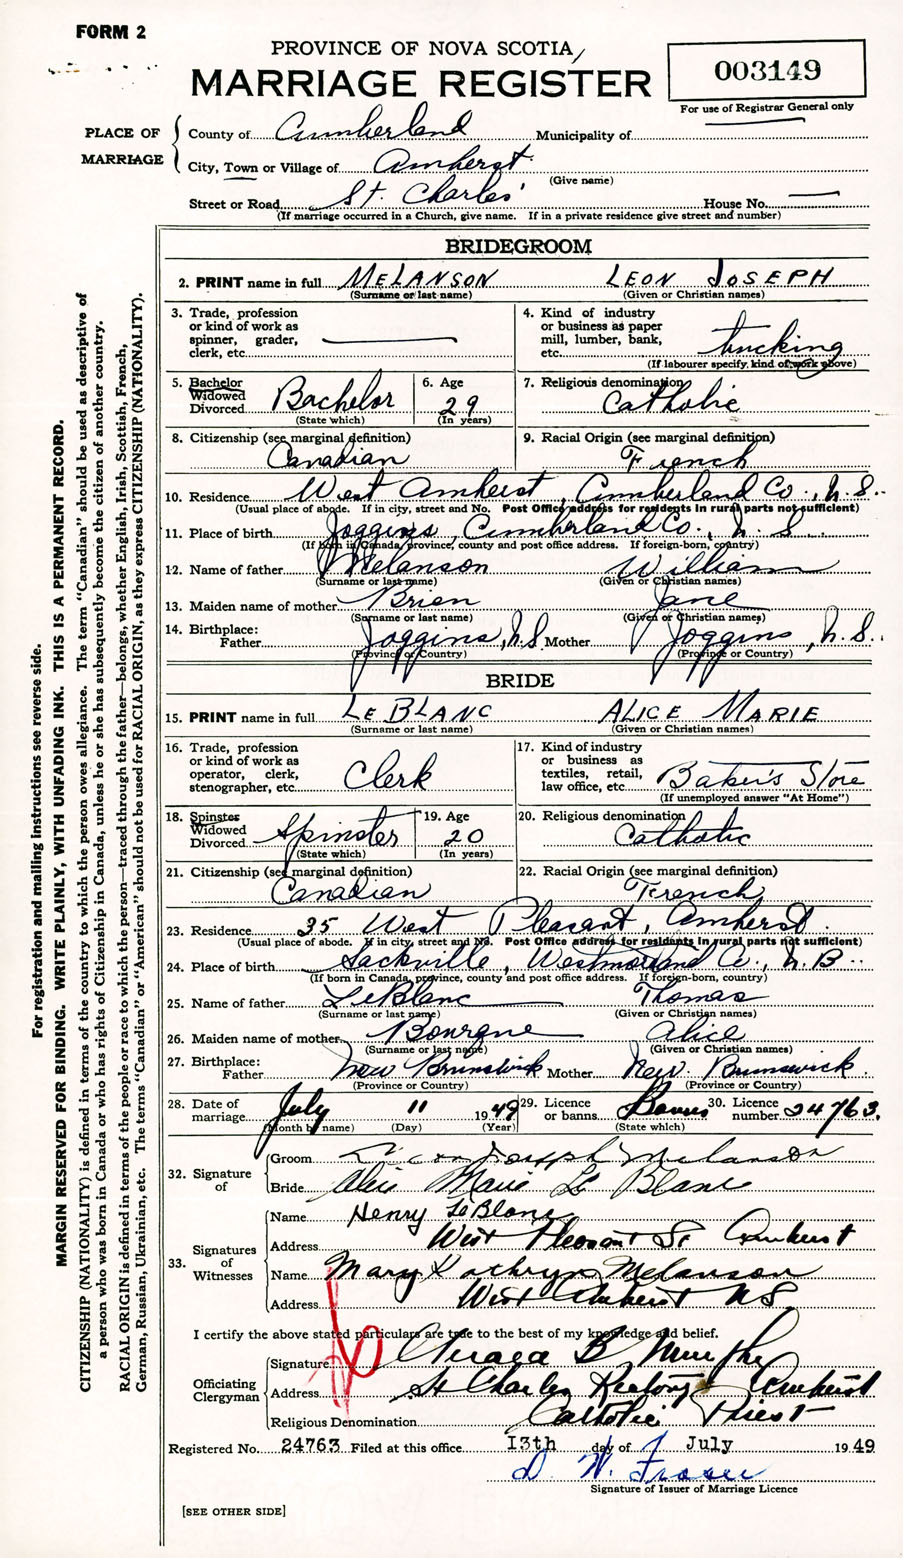 FORM 2
PROVINCE OF NOVA SCOTIA
MARRIAGE REGISTER
003149
For use of Registrar General only
PLACE OF MARRIAGE
County of Cumberland Municipality of
City, Town or Village of Amherst
(Give name)
Street or Road St. Charles' House No. —
(If marriage occurred in a Church, give name. If in a private residence give street and number)
BRIDEGROOM
2. PRINT name in full MELANSON LEON JOSEPH
(Surname or last name) (Given or Christian names)
3. Trade, profession or kind of work as spinner, grader, clerk, etc. —
4. Kind of industry or business as paper mill, lumber, bank, etc. trucking
(If labourer specify kind of work above)
5. Bachelor Widowed Divorced Bachelor (State which)
6. Age 29 (In years)
7. Religious denomination Catholic
8. Citizenship (see marginal definition) Canadian
9. Racial Origin (see marginal definition) French
10. Residence West Amherst, Cumberland Co., N.S.
(Usual place of abode. If in city, street and No. Post Office address for residents in rural parts not sufficient)
11. Place of birth Joggins, Cumberland Co., N.S.
(If born in Canada, province, county and post office address. If foreign-born, country)
12. Name of father Melanson William
(Surname or last name) (Given or Christian names)
13. Maiden name of mother Brien Jane
(Surname or last name) (Given or Christian names)
14. Birthplace: Father Joggins, N.S. Mother Joggins, N.S.
(Province or Country) (Province or Country)
BRIDE
15. PRINT name in full LEBLANC ALICE MARIE
(Surname or last name) (Given or Christian names)
16. Trade, profession or kind of work as operator, clerk, stenographer, etc. Clerk
17. Kind of industry or business as textiles, retail, law office, etc. Baker's Store
(If unemployed answer "At Home")
18. Spinster Widowed Divorced Spinster (State which)
19. Age 20 (In years)
20. Religious denomination Catholic
21. Citizenship (see marginal definition) Canadian
22. Racial Origin (see marginal definition) French
23. Residence 35 West Pleasant, Amherst
(Usual place of abode. If in city, street and No. Post Office address for residents in rural parts not sufficient)
24. Place of birth Sackville, Westmorland Co., N.B.
(If born in Canada, province, county and post office address. If foreign-born, country)
25. Name of father LeBlanc Thomas
(Surname or last name) (Given or Christian names)
26. Maiden name of mother Bourgue Alice
(Surname or last name) (Given or Christian names)
27. Birthplace: Father New Brunswick Mother New Brunswick
(Province or Country) (Province or Country)
28. Date of marriage July 11 1949
(Month by name) (Day) (Year)
29. Licence or banns Banns (State which)
30. Licence number 24763
32. Signature of
Groom Leon Joseph Melanson
Bride Alice Marie Le Blanc
33. Signatures of Witnesses
Name Henry LeBlanc
Address West Pleasant St Amherst
Name Mary Kathryn Melanson
Address West Amherst NS
I certify the above stated particulars are true to the best of my knowledge and belief.
Officiating Clergyman
Signature B Murphy
Address St Charles Rectory Amherst
Religious Denomination Catholic Priest
Registered No. 24763 Filed at this office 13th day of July 1949
D. W. Fraser
Signature of Issuer of Marriage Licence
[SEE OTHER SIDE]
For registration and mailing instructions see reverse side.
MARGIN RESERVED FOR BINDING. WRITE PLAINLY, WITH UNFADING INK. THIS IS A PERMANENT RECORD.
CITIZENSHIP (NATIONALITY) is defined in terms of the country to which the person owes allegiance. The term "Canadian" should be used as descriptive of
a person who was born in Canada or who has rights of Citizenship in Canada, unless he or she has subsequently become the citizen of another country.
RACIAL ORIGIN is defined in terms of the people or race to which the person—traced through the father—belongs, whether English, Irish, Scottish, French,
German, Russian, Ukrainian, etc. The terms "Canadian" or "American" should not be used for RACIAL ORIGIN, as they express CITIZENSHIP (NATIONALITY).